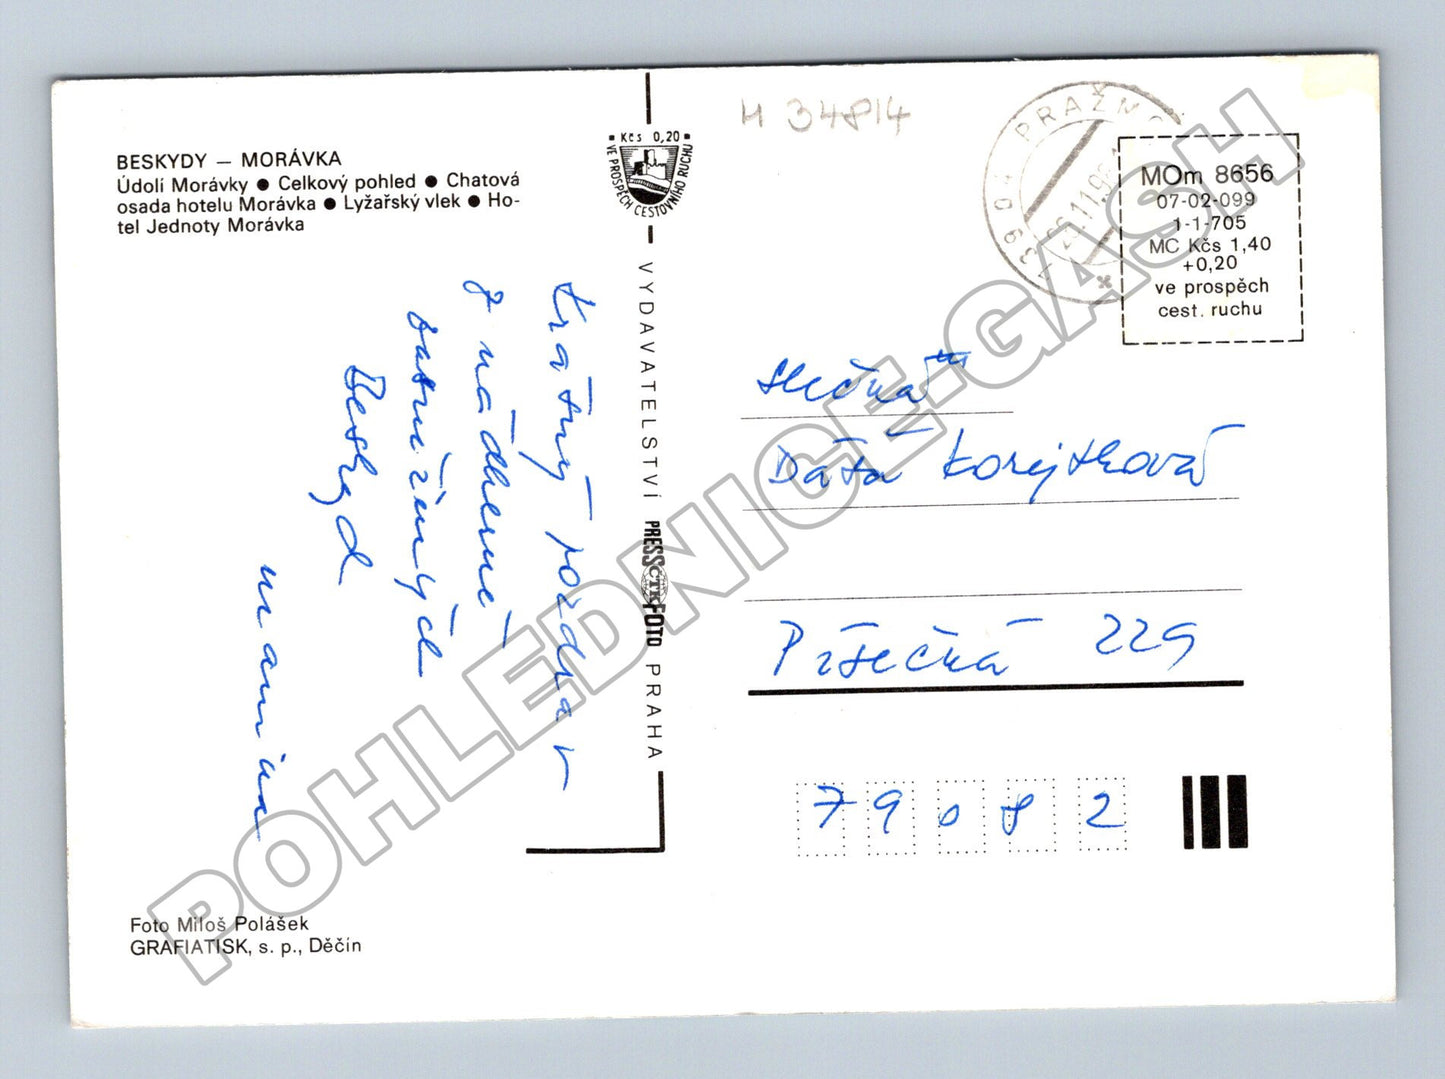 BESKYDY – MORÁVKA
Údolí Morávky ● Celkový pohled ● Chatová
osada hotelu Morávka ● Lyžařský vlek ● Ho-
tel Jednoty Morávka
Kčs 0,20
VE PROSPĚCH CESTOVNÍHO RUCHU
H 34814
739 04 PRAŽMO
MOm 8656
07-02-099
1-1-705
MC Kčs 1,40
+0,20
ve prospěch
cest. ruchu
Krásný pozdrav
z nádherně
zasněžených
Beskyd
VYDAVATELSTVÍ PRESSFOTO PRAHA
ČTK
slečna
Dáša Korejtková
Písečná 229
79082
Foto Miloš Polášek
GRAFIATISK, s. p., Děčín
POHLEDNICE-GASH